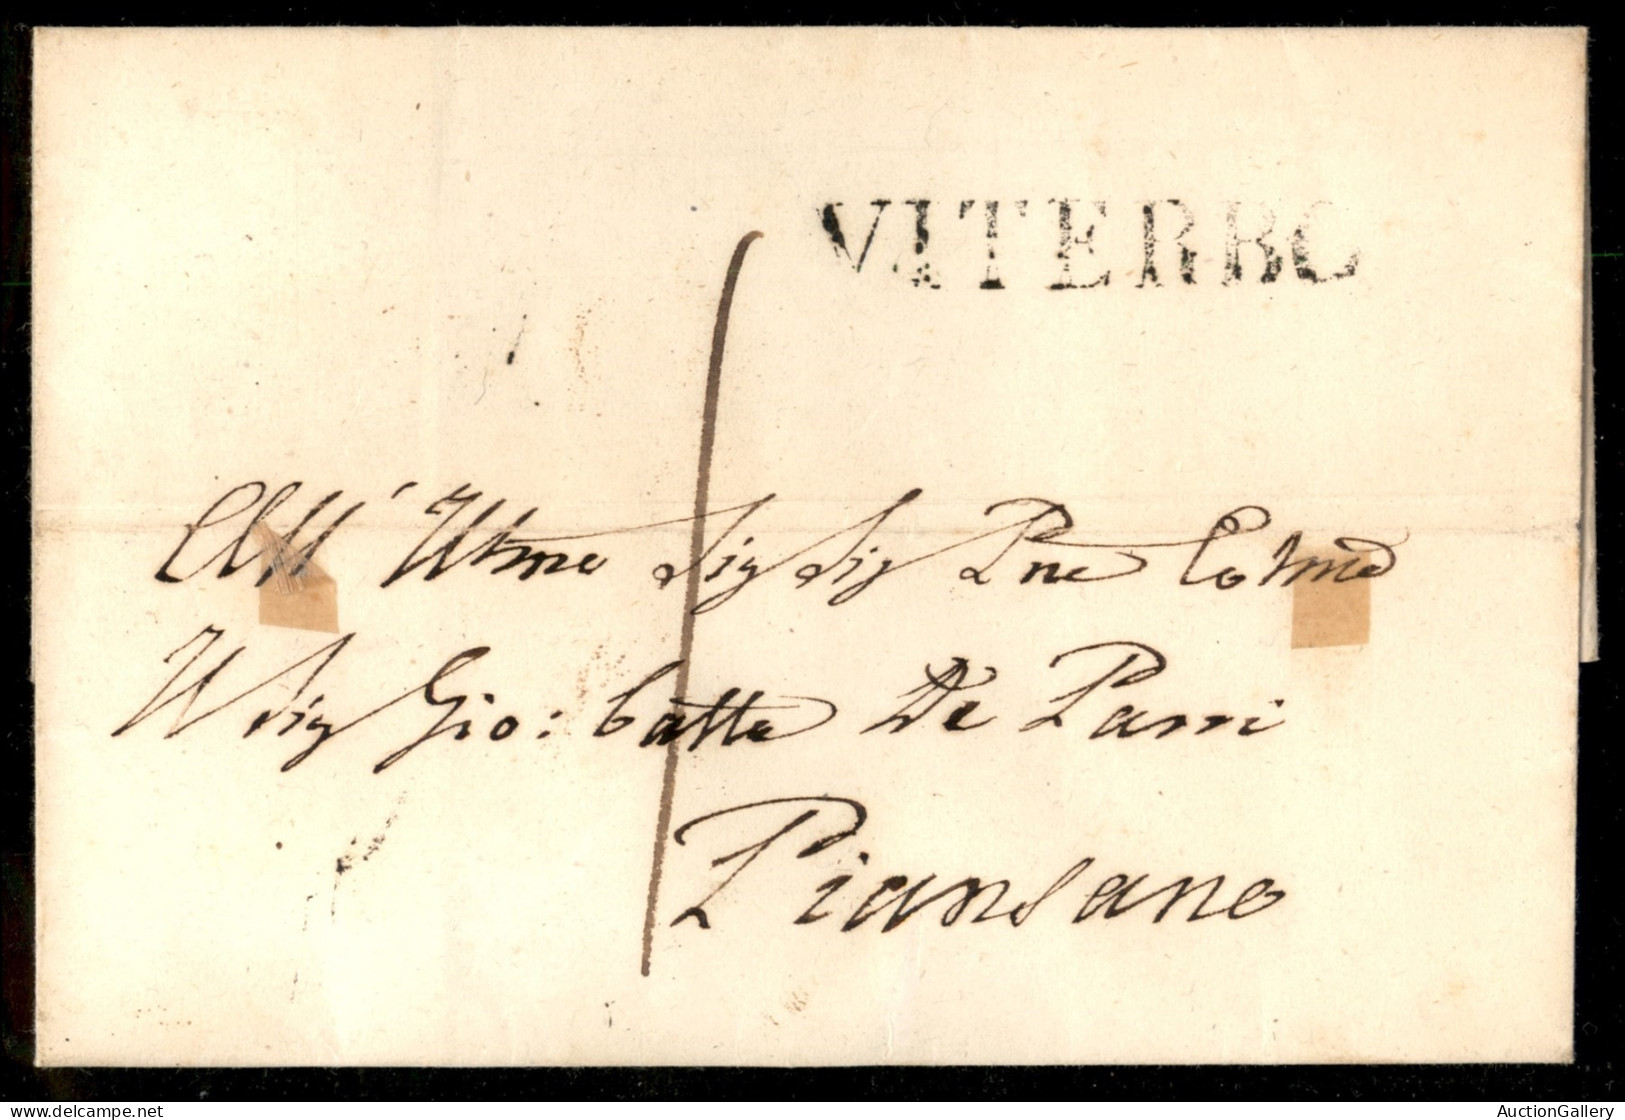 VITERBO
All' Illmo Sig Sig Pne Colmo
Il Sig Gio: Batta De Parri
Piansano
AuctionGallery